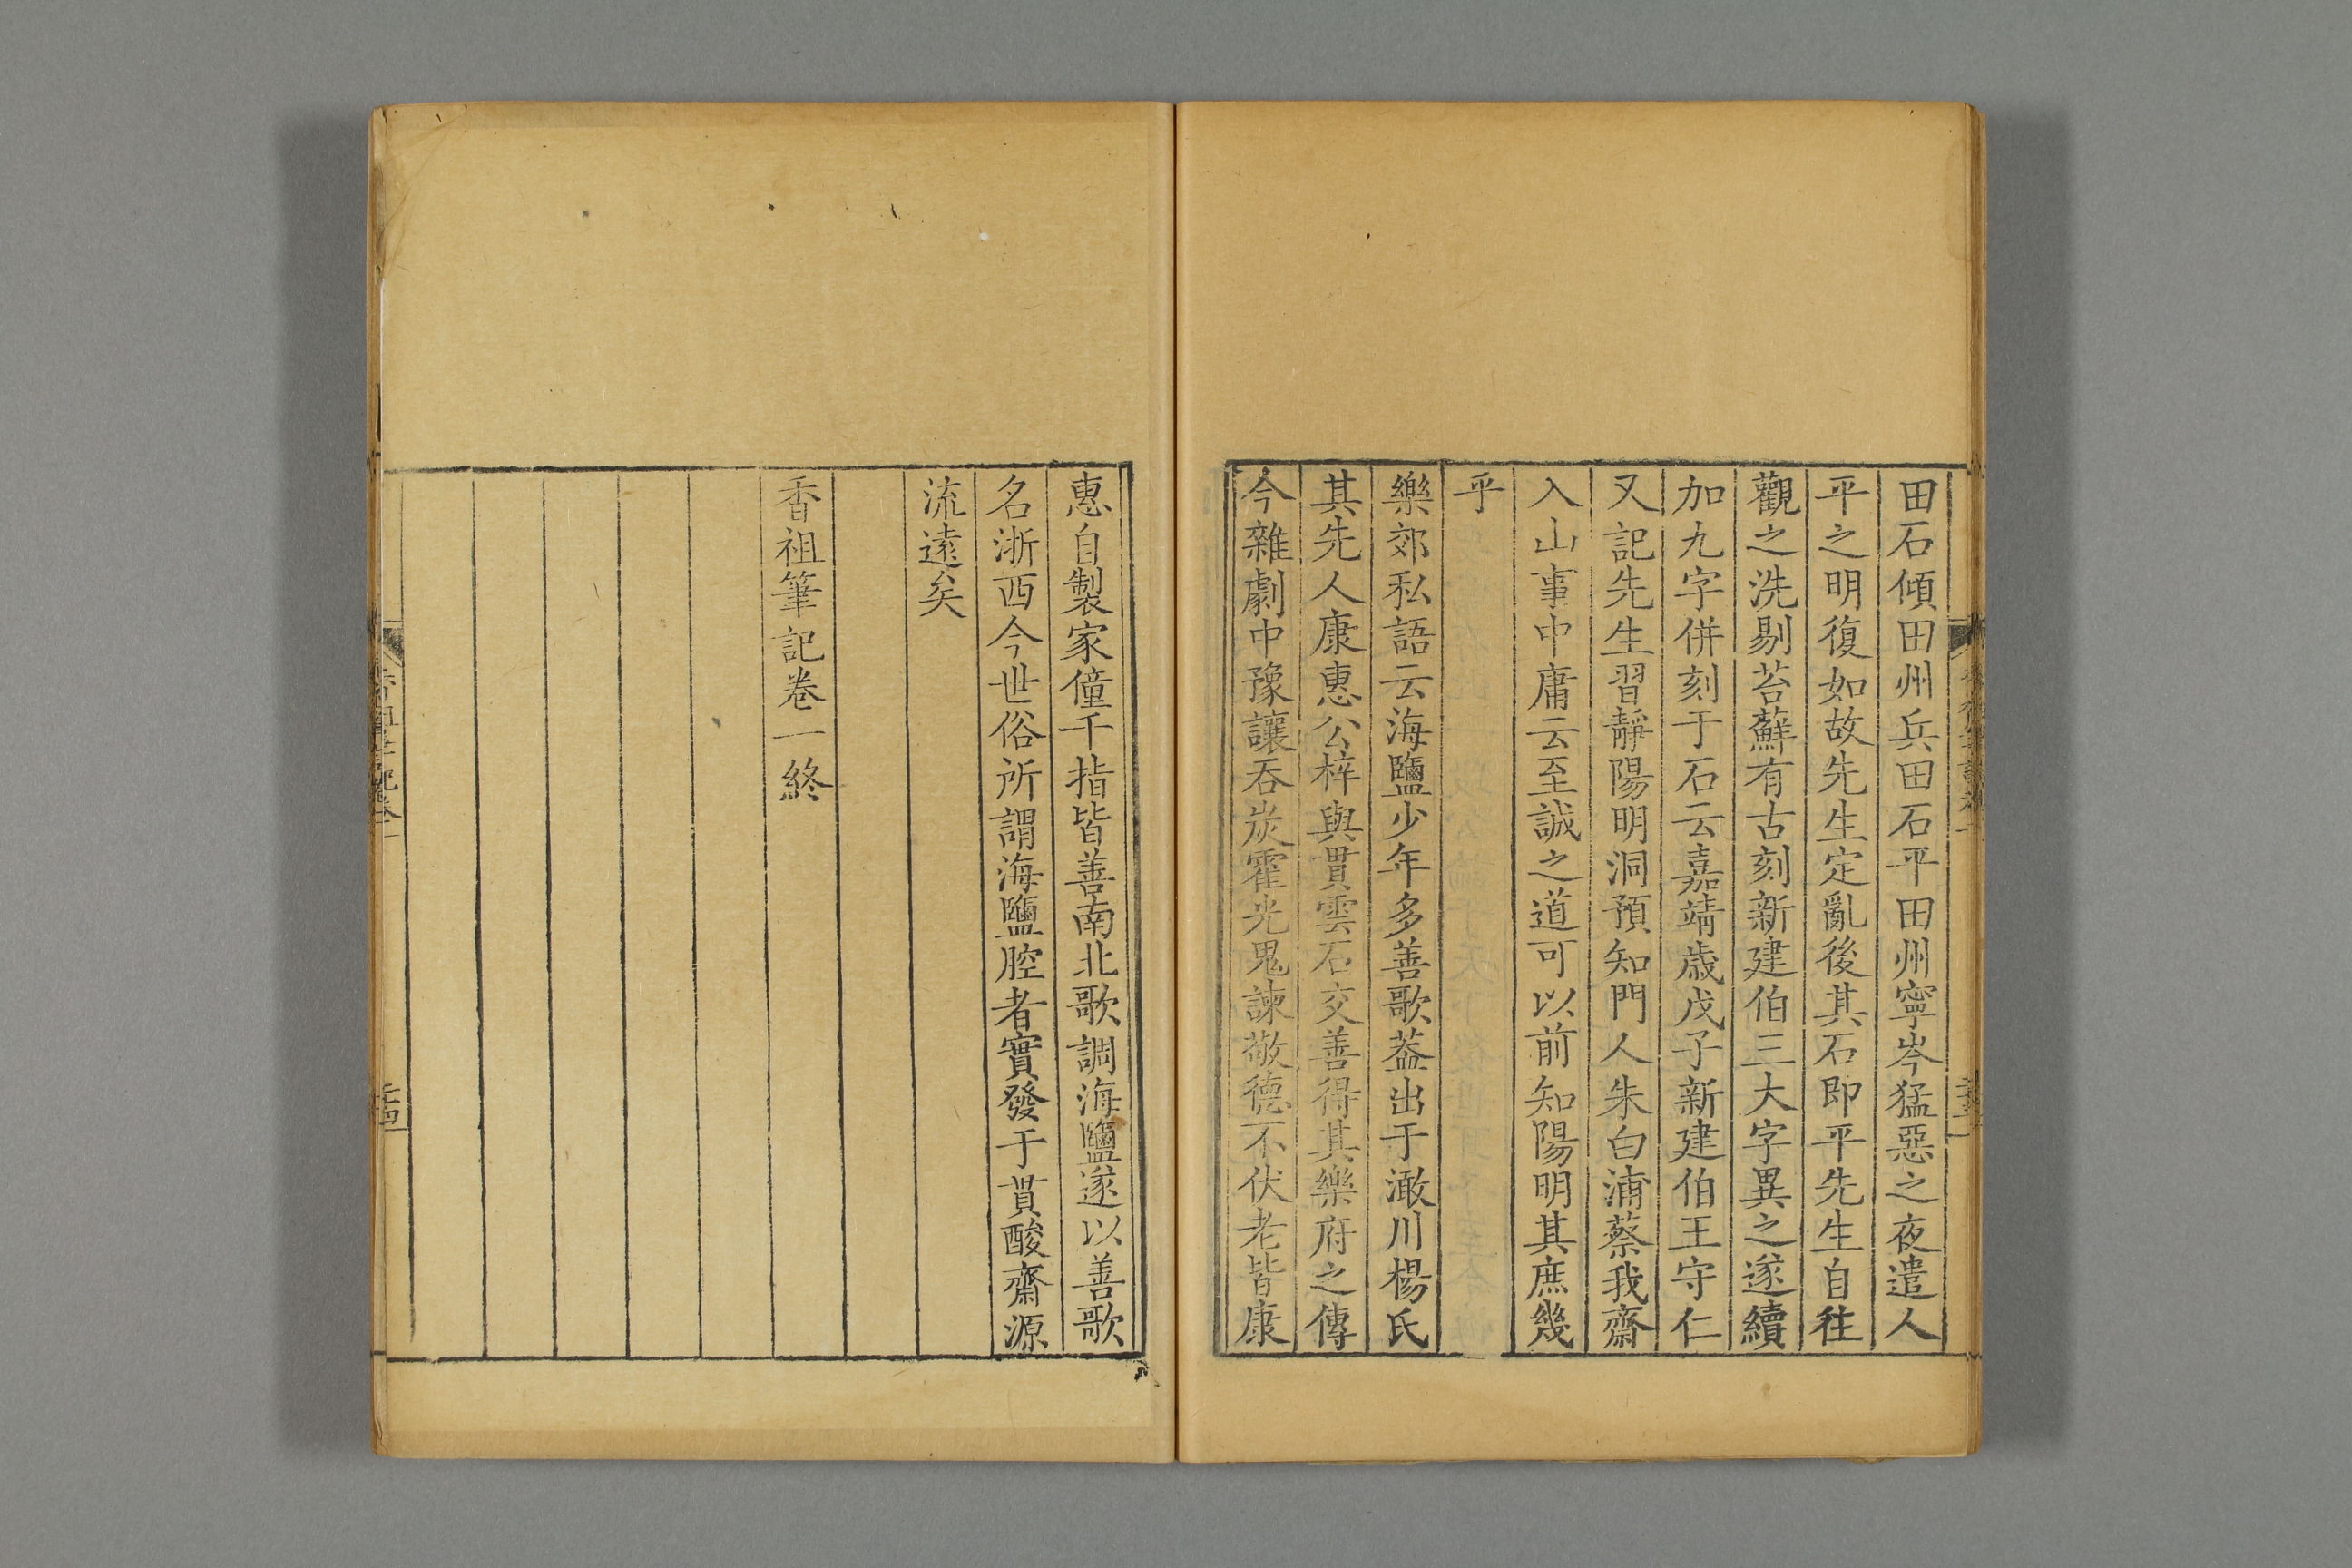 田石傾田州兵田石平田州寧岑猛惡之夜遣人
平之明復如故先生定亂後其石即平先生自往
觀之洗剔苔蘚有古刻新建伯三大字異之遂續
加九字併刻于石云嘉靖歳戊子新建伯王守仁
又記先生習靜陽明洞預知門人朱白浦蔡我齋
入山事中庸云至誠之道可以前知陽明其庶幾
乎
樂郊私語云海鹽少年多善歌葢出于澉川楊氏
其先人康惠公梓與貫雲石交善得其樂府之傳
今雜劇中豫讓吞炭霍光鬼諫敬德不伏老皆康
惠自製家僮千指皆善南北歌調海鹽遂以善歌
名浙西今世俗所謂海鹽腔者實發于貫酸齋源
流遠矣
香祖筆記卷一終